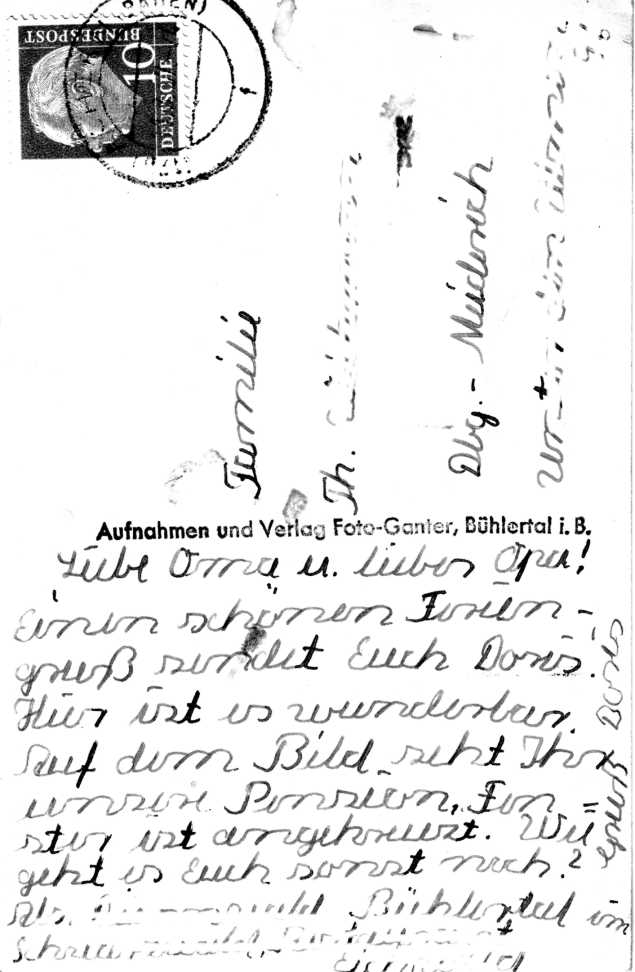 DEUTSCHE
BUNDESPOST
10
BADEN)
Familie
Th.
Dbg.- Meiderich
Aufnahmen und Verlag Foto-Ganter, Bühlertal i. B.
Liebe Oma u. lieber Opa!
Einen schönen Ferien-
gruß sendet Euch Doris.
Hier ist es wunderbar.
Auf dem Bild seht Ihr
unsere Pension, Fen=
ster ist angekreuzt. Wie
geht es Euch sonst noch?
Gruß Doris
Abs. Bühlertal im